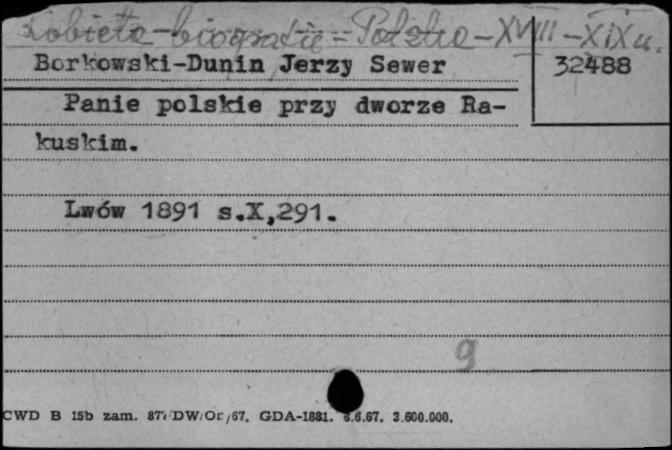 Kobieta - biografie - Polska - XVIII - XIX w.
Borkowski-Dunin Jerzy Sewer 32488
Panie polskie przy dworze Ra-
kuskim.
Lwów 1891 s.X,291.
9
CWD B 15b zam. DW/Or/67. GDA-1881. 6.6.67. 3.600.000.